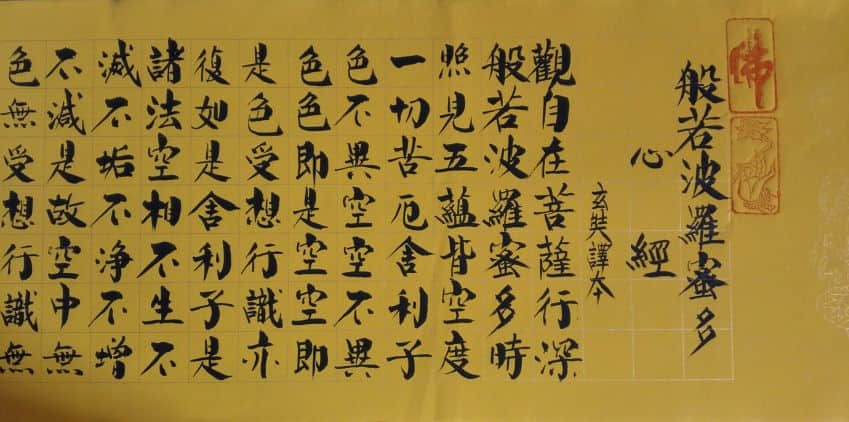 佛
般若波羅蜜多
心經
玄奘譯本
觀自在菩薩行深
般若波羅蜜多時
照見五蘊皆空度
一切苦厄舍利子
色不異空空不異
色色即是空空即
是色受想行識亦
復如是舍利子是
諸法空相不生不
滅不垢不淨不增
不減是故空中無
色無受想行識無